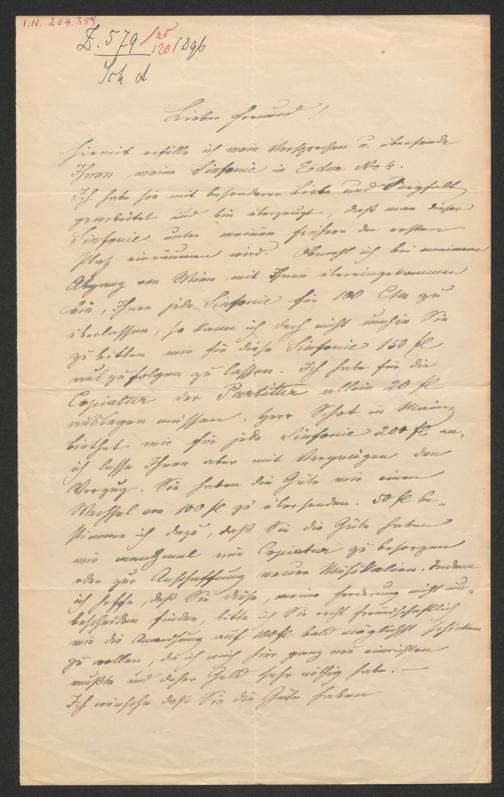 I.N. 204.354
Z. 579 / 1896
Sch d
Lieber Freund!
Hiermit erfülle ich mein Versprechen u. übersende
Ihnen meine Sinfonie in Es dur No 4.
Ich habe sie mit besonderer Liebe und Sorgfalt
gearbeitet und bin überzeugt, daß man dieser
Sinfonie unter meinen frühern den ersten
Platz einräumen wird. Obwohl ich bei meinem
Abgang von Wien mit Ihnen übereingekommen
bin, Ihnen jede Sinfonie für 100 zu
überlassen, so kann ich doch nicht umhin Sie
zu bitten mir für diese Sinfonie 150 fl
ausfolgen zu lassen. Ich habe für die
Copiatur der Partitur allein 20 fl
auslegen müssen. Herr Schot in Mainz
biethet mir für jede Sinfonie 200 fl an,
ich lasse Ihnen aber mit Vergnügen den
Vorzug. Sie haben die Güte mir einen
Wechsel von 100 fl zu übersenden. 50 fl be-
stimme ich dazu, daß Sie die Güte haben
mir manchmal eine Copiatur zu besorgen
oder zur Anschaffung neuer Musikalien. Indem
ich hoffe, daß Sie diese, meine Forderung nicht un-
bescheiden finden, bitte ich Sie recht freundschaftlich
mir die Anweisung auf 100 fl bald möglichst schicken
zu wollen, da ich mich hier ganz neu einrichten
mußte und daher Geld sehr nöthig habe. —
Ich wünsche daß Sie die Güte haben